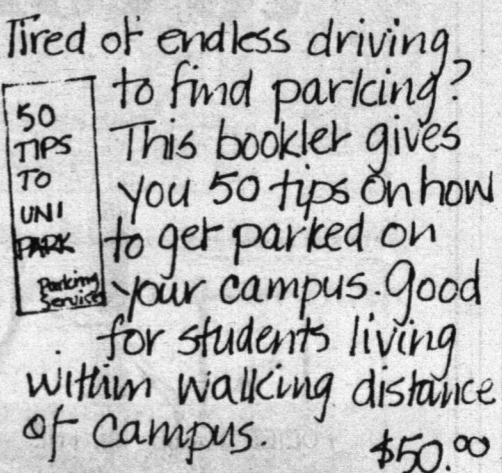 Tired of endless driving
to find parking?
This booklet gives
you 50 tips on how
to get parked on
your campus. Good
for students living
within walking distance
of campus.
$50.00
50
TIPS
TO
UNI
PARK
Parking
Services